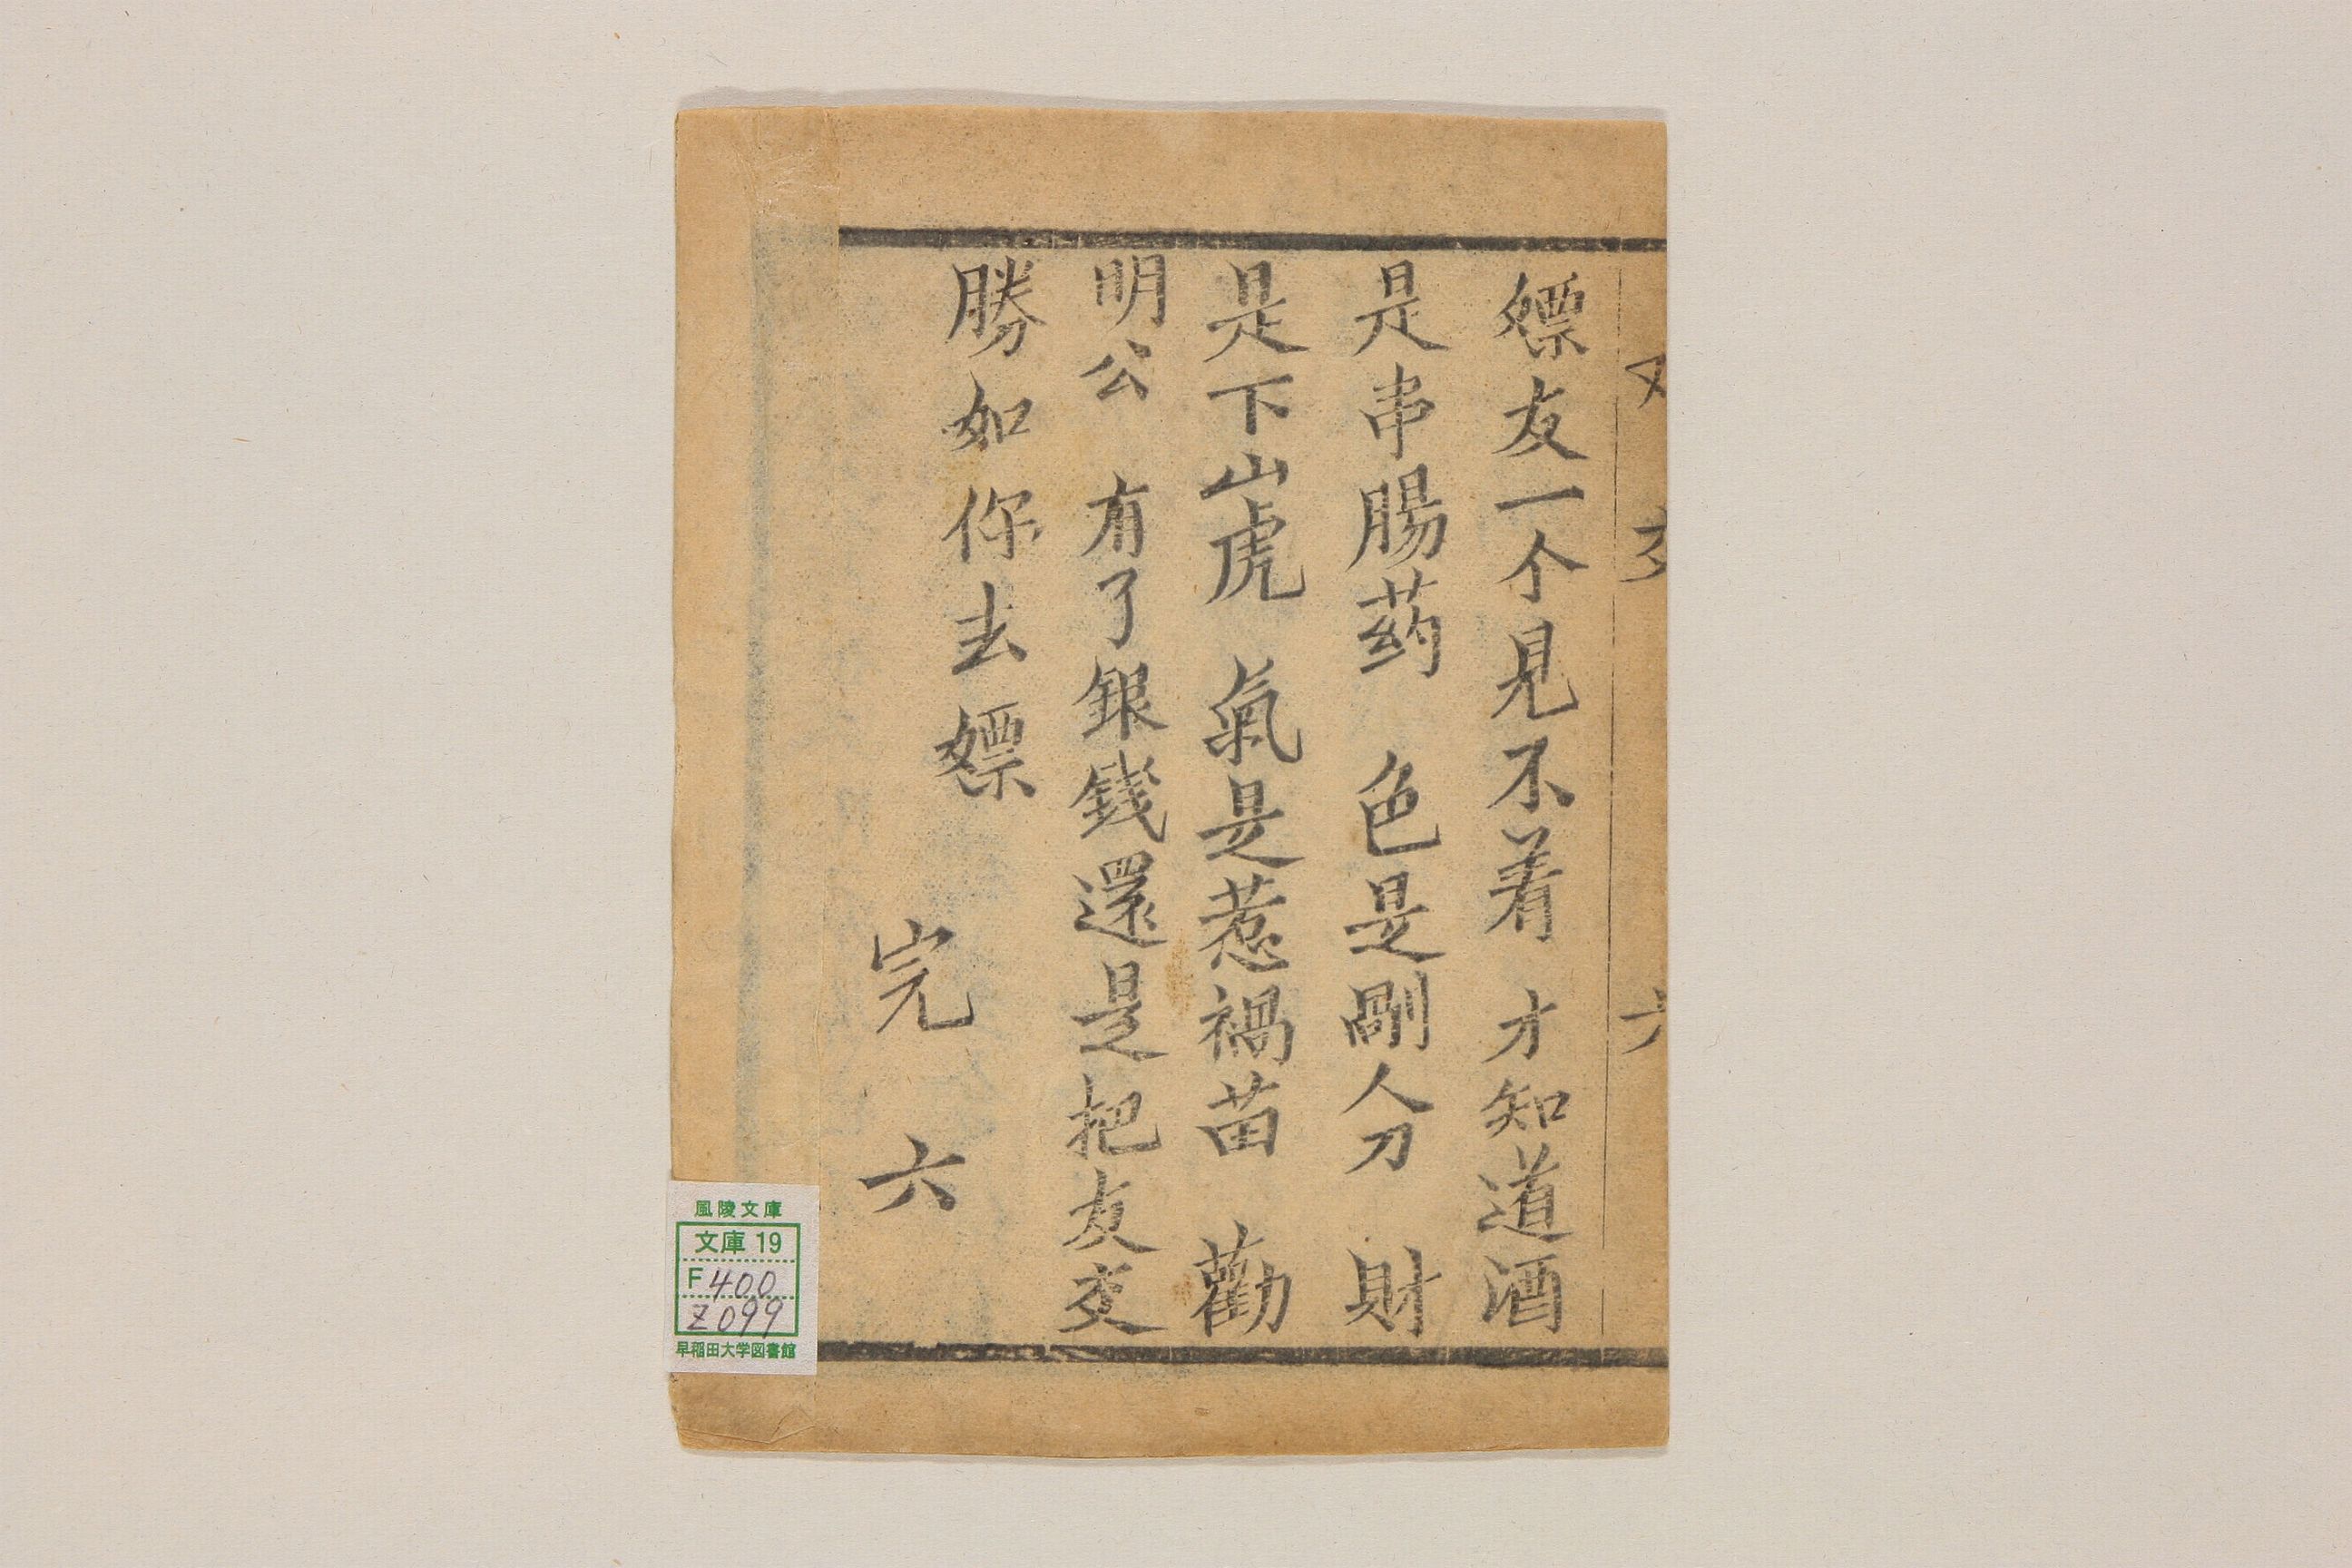 嫖友一个見不着 才知道酒
是串腸药 色是剮人刀 財
是下山虎 氣是惹禍苗 勸
明公 有了銀錢還是把友交
勝如你去嫖
完 六
風陵文庫
文庫 19
F400
Z099
早稲田大学図書館